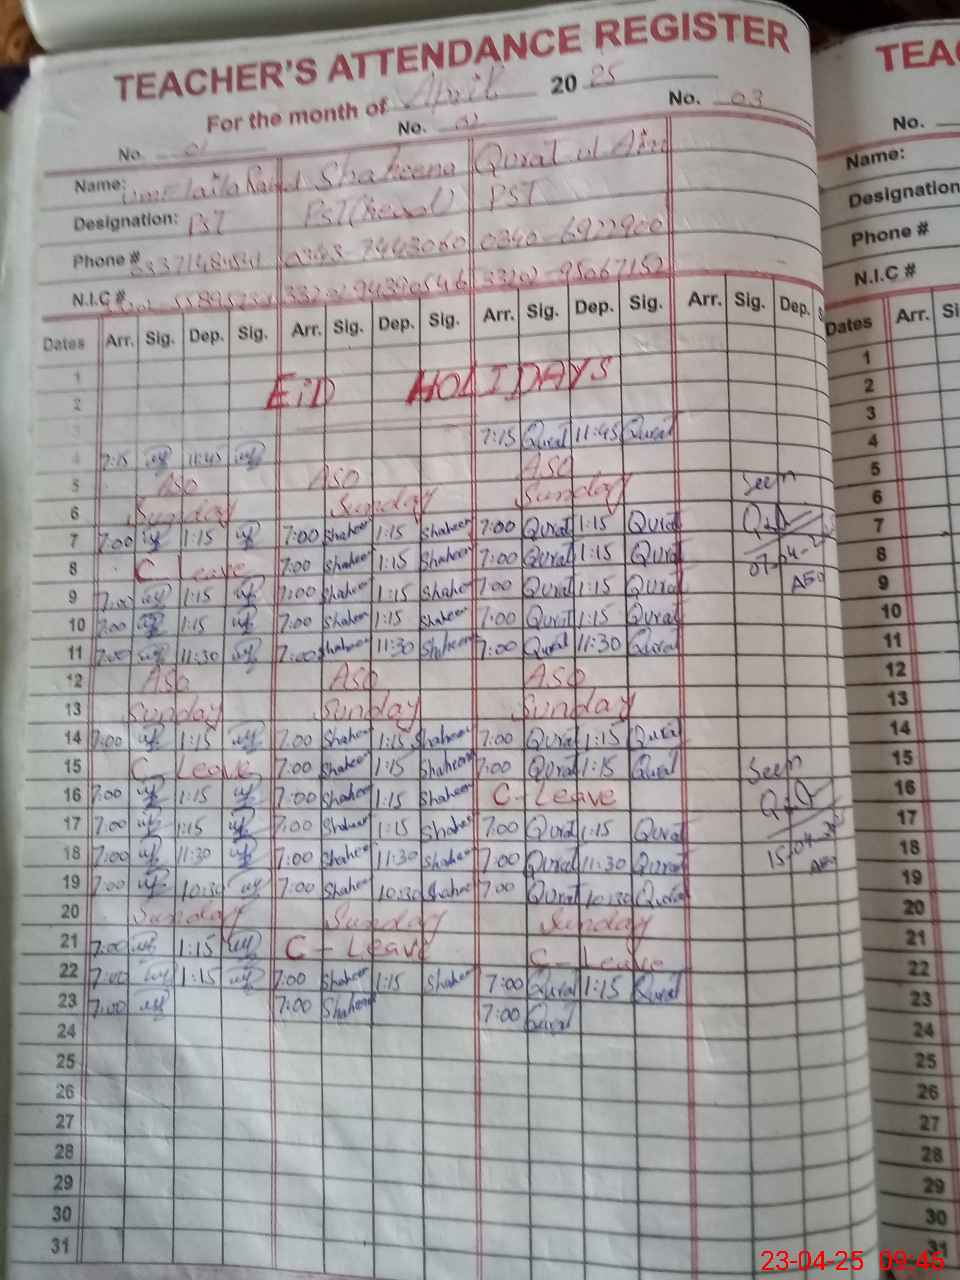 TEACHER'S ATTENDANCE REGISTER
For the month of April 2025
No. 01 No. 02 No. 03
Name: Shaheena Qurat ul Ain
Designation: PST PST (Head) PST
Phone # 0343-7443060 0340-6922900
N.I.C #
Dates Arr. Sig. Dep. Sig. Arr. Sig. Dep. Sig. Arr. Sig. Dep. Sig. Arr. Sig. Dep. S
1 EID HOLIDAYS
2
3 7:15 Qurat 11:45 Qurat
4 7:15 11:45
5 ASO ASO ASO
6 Sunday Sunday Sunday Seen
7 7:00 1:15 7:00 Shaheen 1:15 Shaheen 7:00 Qurat 1:15 Qurat
8 C Leave 7:00 Shaheen 1:15 Shaheen 7:00 Qurat 1:15 Qurat
9 7:00 1:15 7:00 Shaheen 1:15 Shaheen 7:00 Qurat 1:15 Qurat AEO
10 7:00 1:15 7:00 Shaheen 1:15 Shaheen 7:00 Qurat 1:15 Qurat
11 7:00 11:30 7:00 Shaheen 11:30 Shaheen 7:00 Qurat 11:30 Qurat
12 ASO ASO ASO
13 Sunday Sunday Sunday
14 7:00 1:15 7:00 Shaheen 1:15 Shaheen 7:00 Qurat 1:15 Qurat
15 C Leave 7:00 Shaheen 1:15 Shaheen 7:00 Qurat 1:15 Qurat Seen
16 7:00 1:15 7:00 Shaheen 1:15 Shaheen C-Leave
17 7:00 1:15 7:00 Shaheen 1:15 Shaheen 7:00 Qurat 1:15 Qurat
18 7:00 11:30 7:00 Shaheen 11:30 Shaheen 7:00 Qurat 11:30 Qurat 15-04-25
19 7:00 10:30 7:00 Shaheen 10:30 Shaheen 7:00 Qurat 10:30 Qurat AEO
20 Sunday Sunday Sunday
21 7:00 1:15 C-Leave C-Leave
22 7:00 1:15 7:00 Shaheen 1:15 Shaheen 7:00 Qurat 1:15 Qurat
23 7:00 7:00 Shaheen 7:00 Qurat
24
25
26
27
28
29
30
31
TEAC
No.
Name:
Designation
Phone #
N.I.C #
Dates Arr. Si
1
2
3
4
5
6
7
8
9
10
11
12
13
14
15
16
17
18
19
20
21
22
23
24
25
26
27
28
29
30
31
23-04-25 09:46